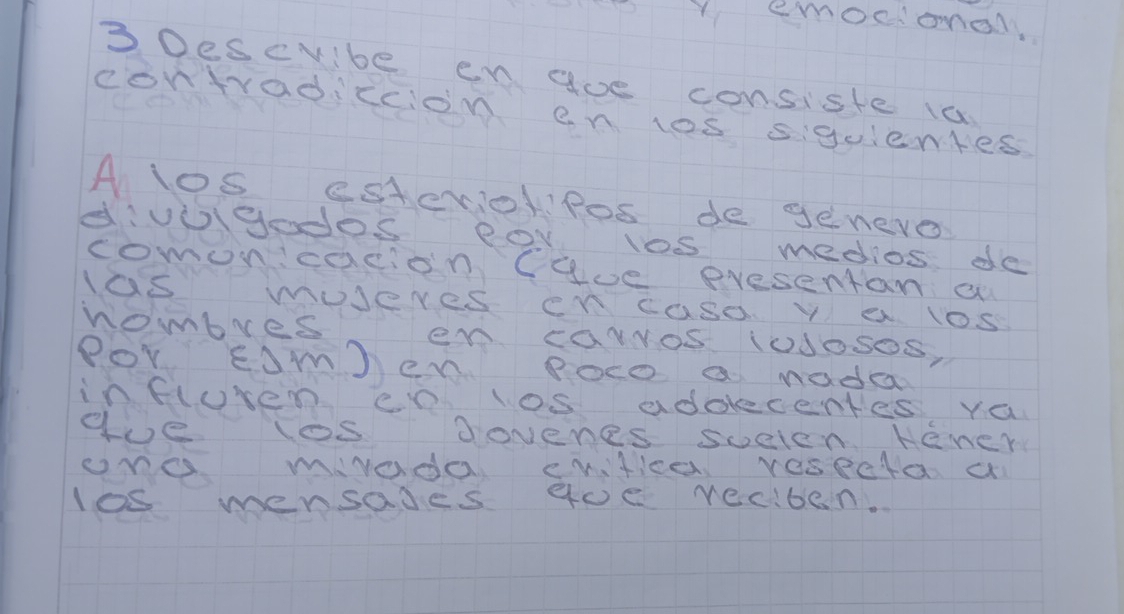 y emocional.
3 Describe en que consiste la
contradiccion en los siguientes
A los esteriotipos de genero
divulgados por los medios de
comunicacion (que presentan a
las mujeres en casa y a los
hombres en carros lujosos,
por EJm) en poco o nada
influyen en los adolecentes ya
que los Jovenes suelen téner
una mirada critica respecta a
los mensajes que reciben.